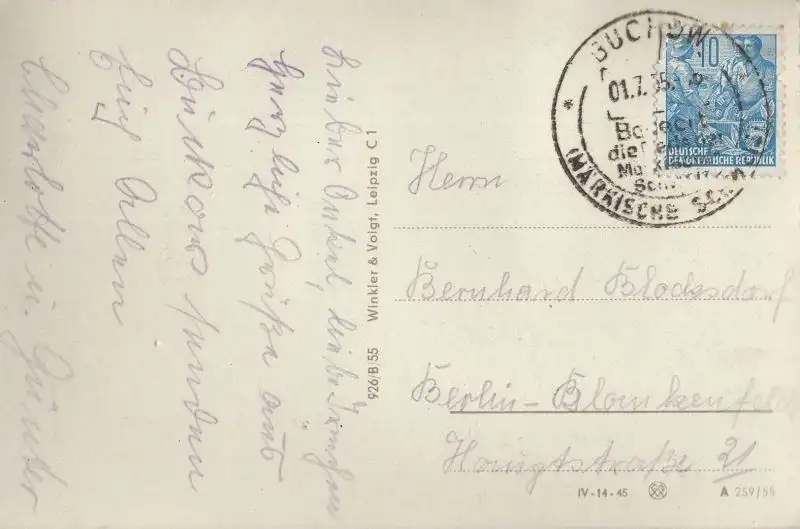 Lieber Onkel, liebe Tanghen
Herzliche Grüße aus
Buckow senden
Euch Allen
Charlotte u. Günter
926/B/55 Winkler & Voigt, Leipzig C 1
BUCKOW
01.7.55
die
(MÄRKISCHE
10
DEUTSCHE
DEMOKRATISCHE REPUBLIK
Herrn
Bernhard Blocksdorf
Berlin-Blankenfelde
Hauptstraße 21
IV-14-45
A 259/55